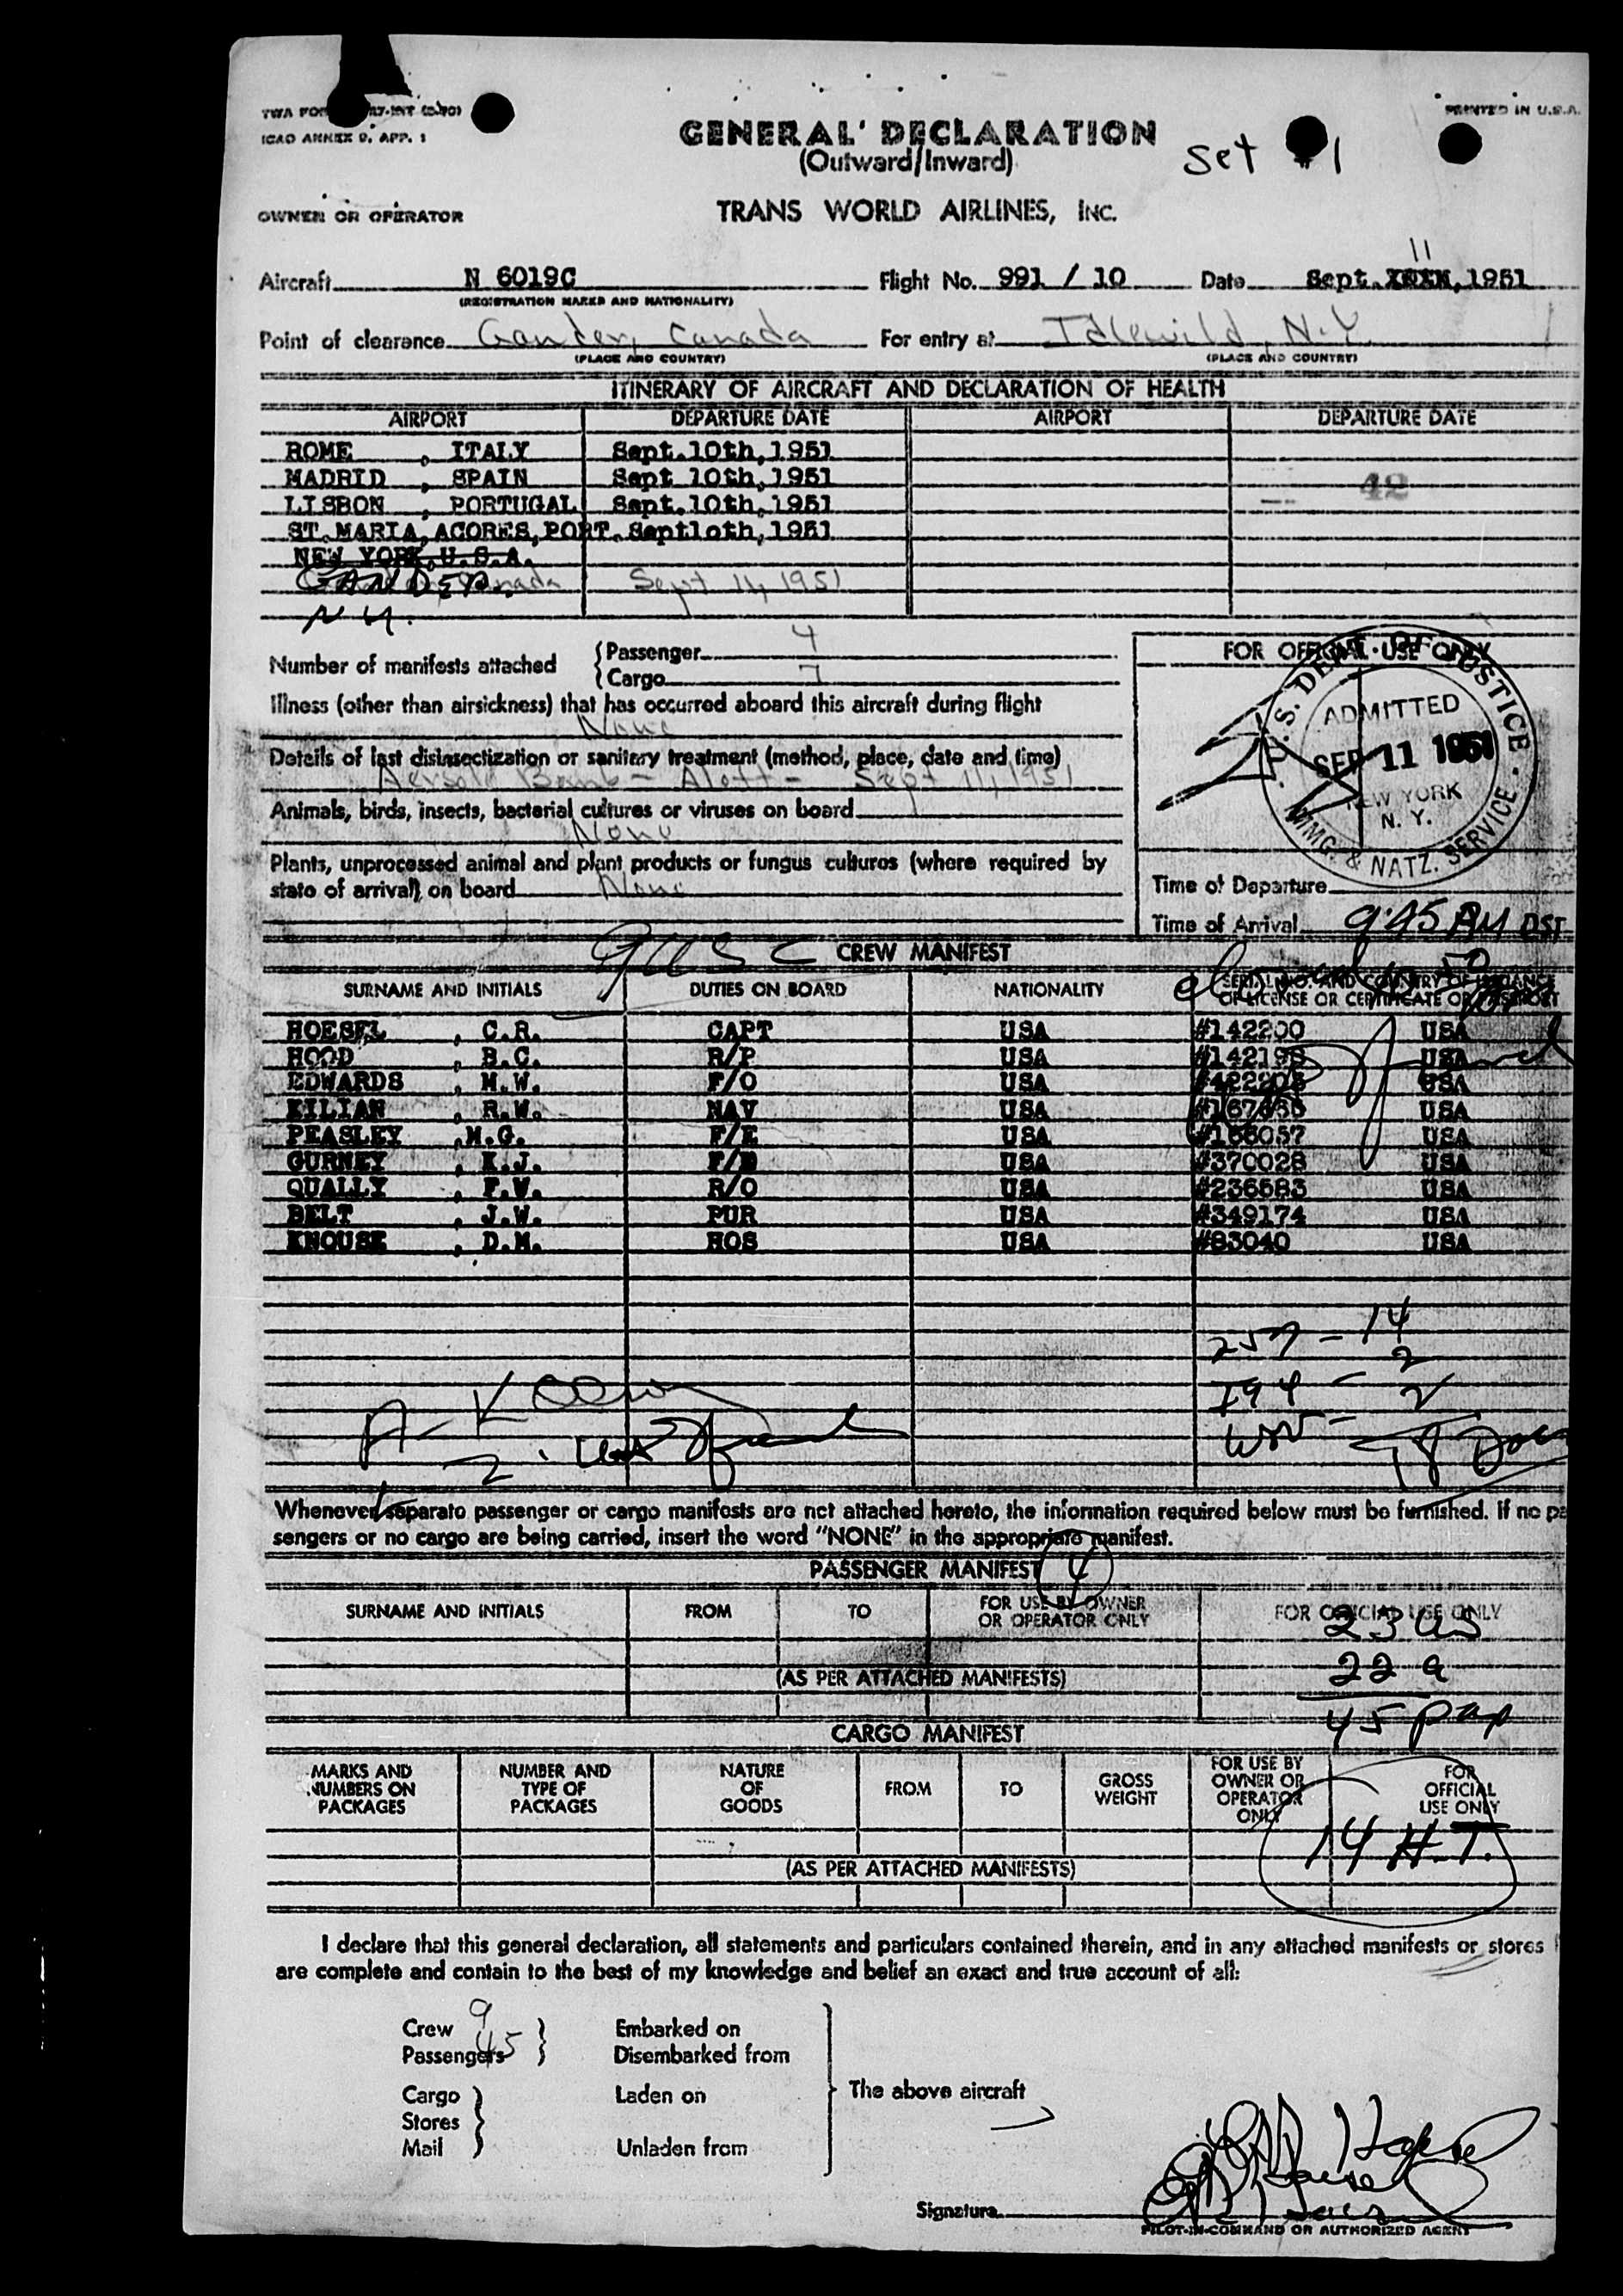 ICAO ANNEX 9, APP. 1
PRINTED IN U.S.A.
GENERAL DECLARATION
(Outward/Inward)
Set # 1
OWNER OR OPERATOR
TRANS WORLD AIRLINES, INC.
11
Aircraft N 6019C Flight No. 991 / 10 Date Sept. 1951
(REGISTRATION MARKS AND NATIONALITY)
Point of clearance Gander, Canada For entry at Idlewild, N.Y.
(PLACE AND COUNTRY) (PLACE AND COUNTRY)
ITINERARY OF AIRCRAFT AND DECLARATION OF HEALTH
AIRPORT DEPARTURE DATE AIRPORT DEPARTURE DATE
ROME , ITALY Sept.10th,1951
MADRID , SPAIN Sept 10th,1951
42
LISBON , PORTUGAL Sept.10th,1951
ST.MARIA,ACORES,PORT. Sept10th,1951
NEW YORK,U.S.A.
GANDER, Canada Sept 11, 1951
N.Y.
Number of manifests attached
Passenger 4
Cargo 7
FOR OFFICIAL USE ONLY
Illness (other than airsickness) that has occurred aboard this aircraft during flight
None
Details of last disinsectization or sanitary treatment (method, place, date and time)
Aerosol Bomb - Aloft - Sept 11, 1951
Animals, birds, insects, bacterial cultures or viruses on board
None
Plants, unprocessed animal and plant products or fungus cultures (where required by
state of arrival) on board None
U.S. DEPT. OF JUSTICE
ADMITTED
SEP 11 1951
NEW YORK
N. Y.
IMMG. & NATZ. SERVICE
Time of Departure
Time of Arrival 9:45 AM DST
9 USC
CREW MANIFEST
SURNAME AND INITIALS DUTIES ON BOARD NATIONALITY SERIAL NO. AND COUNTRY OF ISSUANCE
OF LICENSE OR CERTIFICATE OR PASSPORT
HOESEL , C.R. CAPT USA #142200 USA
HOOD , B.C. R/P USA USA
EDWARDS , M.W. F/O USA USA
KILIAN , R.W. NAV USA USA
PEASLEY ,M.G. F/E USA USA
GURNEY , K.J. F/E USA #370028 USA
QUALLY , F.W. R/O USA #236583 USA
BELT , J.W. PUR USA #349174 USA
KNOUSE , D.M. HOS USA #83040 USA
257 - 14
2
I94 - 2
Whenever separate passenger or cargo manifests are not attached hereto, the information required below must be furnished. If no pa
sengers or no cargo are being carried, insert the word "NONE" in the appropriate manifest.
PASSENGER MANIFEST 4
SURNAME AND INITIALS FROM TO FOR USE BY OWNER
OR OPERATOR ONLY FOR OFFICIAL USE ONLY
23 US
22 a
(AS PER ATTACHED MANIFESTS)
45 pap
CARGO MANIFEST
MARKS AND
NUMBERS ON
PACKAGES
NUMBER AND
TYPE OF
PACKAGES
NATURE
OF
GOODS
FROM
TO
GROSS
WEIGHT
FOR USE BY
OWNER OR
OPERATOR
ONLY
FOR
OFFICIAL
USE ONLY
14 H.T.
(AS PER ATTACHED MANIFESTS)
I declare that this general declaration, all statements and particulars contained therein, and in any attached manifests or stores
are complete and contain to the best of my knowledge and belief an exact and true account of all:
Crew 9 Embarked on
Passengers 45 Disembarked from
Cargo Laden on The above aircraft
Stores
Mail Unladen from
Signature
PILOT-IN-COMMAND OR AUTHORIZED AGENT